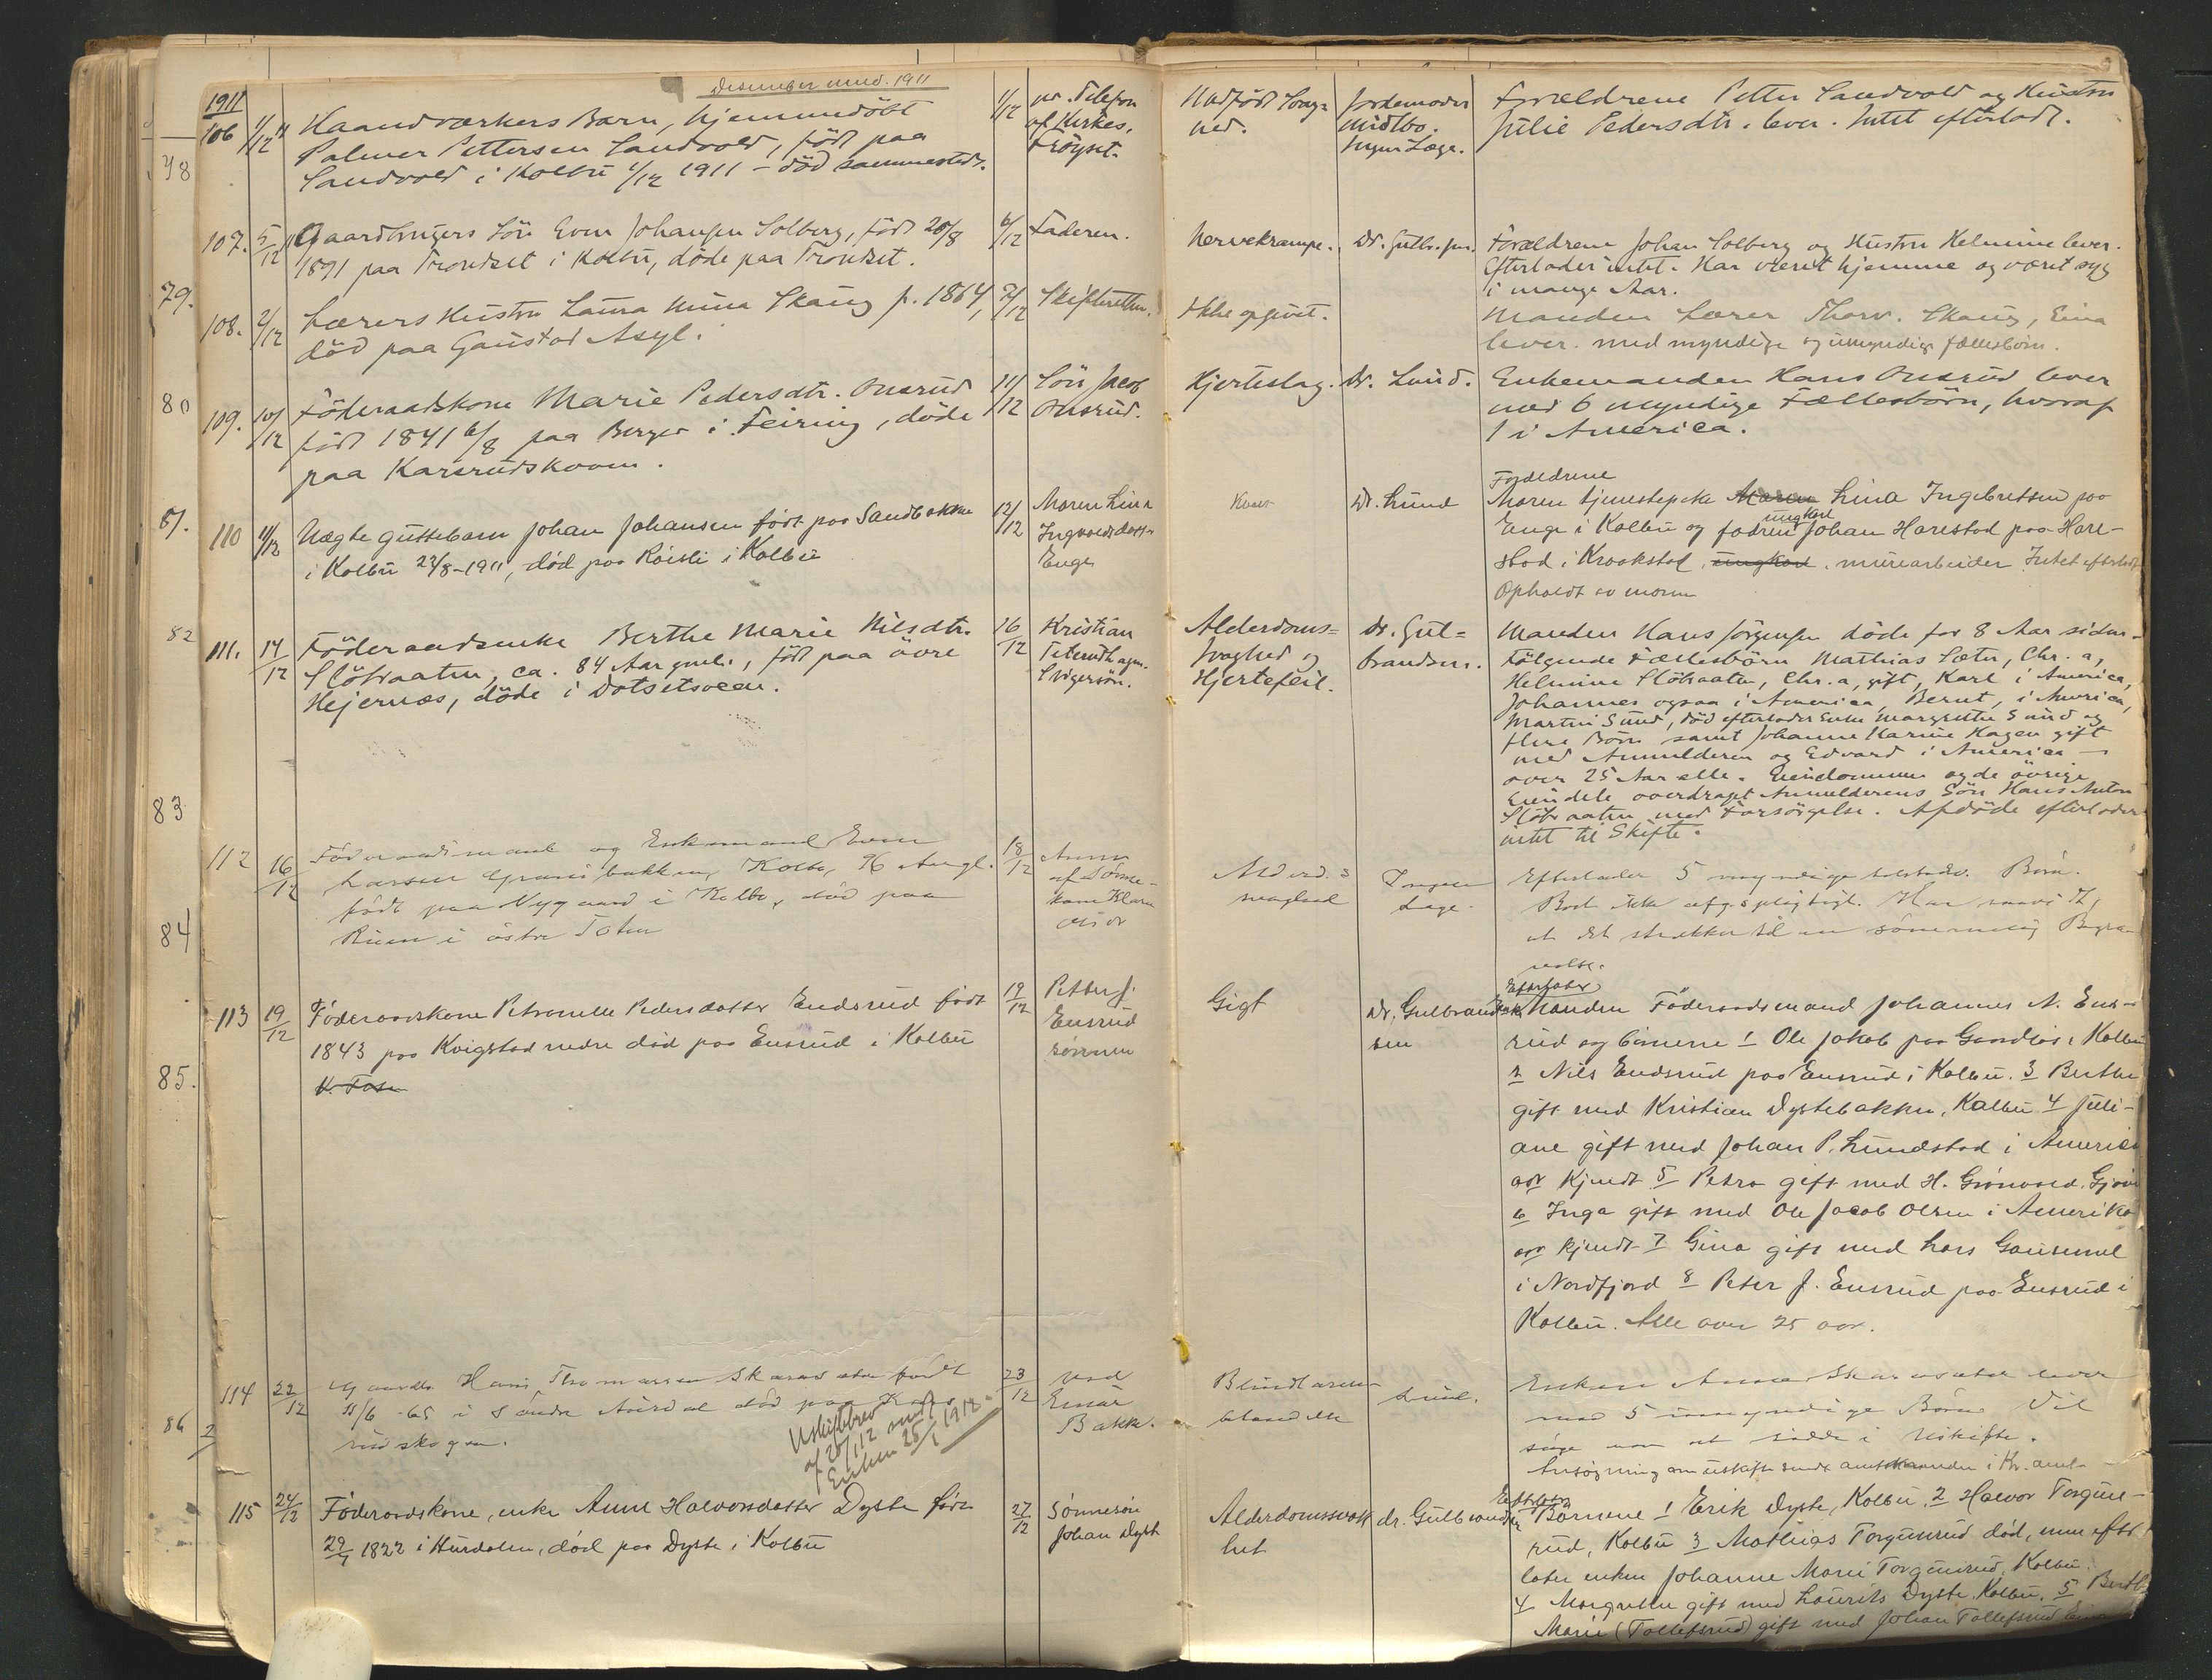 Desember mnd. 1911
1911
106 1/12 11 Haandværkers Barn, hjemmedöbt
Palmer Pettersen Sandvold, födt paa
Sandvold i Kolbu 1/12 1911 – död sammesteds.
1/12 pr. Telefon
af Kirkes.
Fröyset.
Medfödt Svag-
hed.
Jordemoder
Midtbo.
Ingen Læge.
Forældrene Petter Sandvold og Hustru
Julie Pedersdtr. lever. Intet efterladt.
107. 5/12 11 Gaardbrugers Sön Even Johansen Solberg, född 20/8
1891 paa Trondset i Kolbu, döde paa Trondset.
6/12 Faderen.
Nervekrampe. Dr. Gulbr.sen.
Forældrene Johan Solberg og Hustru Helmine lever.
Efterlader intet. Har været hjemme og været syg
i mange Aar.
108. 2/12 Lærers Hustru Laura Mina Skaug f. 1864,
död paa Gaustad Asyl.
7/12 Skifteretten.
Ikke opgivet.
Manden Lærer Thorv. Skaug, Eina
lever. med myndige og umyndige fællesbörn.
109. 10/12 Föderaadskone Marie Pedersdtr. Onsrud
född 1841 6/8 paa Berger i Feiring, döde
paa Karsrudskoven.
11/12 Sön Jacob
Onsrud.
Hjerteslag. Dr. Lund.
Enkemanden Hans Onsrud lever
med 6 myndige Fællesbörn, hvoraf
1 i America.
110 11/12 Uægte guttebarn Johan Johansen født paa Sandbakken
i Kolbu 22/8-1911, død paa Röisli i Kolbu
12/12 Moren Lina
Ingvaldsdatter
Enge
Dr. Lund
Forældrene
Moren tjenestepike Maren Lina Ingebretsen paa
Enge i Kolbu og fadren ungkarl Johan Harestad paa Hare-
stad i Kraakstad ungkarl. murearbeider Intet efterladt
Opholdt av moren
111. 14/12 Föderaadsenke Berthe Marie Nilsdtr.
Slöbraaten, ca. 84 Aar gml., född paa övre
Hejernæs, döde i Dotsetsveen.
16/12 Kristian
Peterudhagen.
Svigersön.
Alderdoms=
svaghed og
Hjertefeil.
Dr. Gul=
brandsen.
Manden Hans Jörgensen döde for 8 Aar siden.
Fölgende Fællesbörn Mathias Sæter, Chr. a,
Helmine Slöbraaten, Chr. a, gift, Karl i America,
Johannes ogsaa i America, Bernt, i America,
Martin Sund, död efterlader Enke Margrethe Sund og
flere Börn samt Johanne Karine Hagen gift
med Anmelderen og Edvard i America –
over 25 Aar alle. Eiendommen og de övrige
Eiendele overdraget Anmelderens Sön Hans Anton
Slöbraaten med Forsörgelse. Afdöde efterlader
intet til Skifte.
112 16/12 Föderaadsmand og Enkemand Even
Larsen Granibakken, Kolbu, 76 Aar gl.
född paa Nygaard i Kolbu, död paa
Ruen i östre Toten
18/12
af Sönne-
kone Klara
Alderd.s
svaghed
Ingen
Læge.
Efterlader 5 myndige Börn.
Boet ikke afg.spligtigt. Har saavidt,
at det strækker til en sömmelig Begra-
velse.
113 19/12 Föderaadskone Petronelle Pedersdatter Endsrud født
1843 paa Kvigstad nedre död paa Ensrud i Kolbu
V. Toten
19/12 Petter J.
Ensrud
sönnen
Gigt
Dr. Gulbrand-
sen
Efterlater
Manden Föderaadsmand Johannes N. Ens-
rud og börnene 1 Ole Jakob paa Gaardlös i Kolbu
2 Nils Endsrud paa Ensrud i Kolbu. 3 Berthe
gift med Kristian Dystebakken, Kolbu 4 Juli-
ane gift med Johan P. Lundstad i Amerika
adr kjendt 5 Petra gift med H. Grönvold. Gjövik
6 Inga gift med Ole Jacob Olsen i Amerika
adr kjendt 7 Gina gift med Lars Gausemel
i Nordfjord 8 Peter J. Ensrud paa Ensrud i
Kolbu. Alle over 25 aar.
114 22/12 Gaardbr. Hans Thomassen Skaradsæter født
11/6 -65 i Söndre Aurdal död paa Kars-
rudskogen.
Uskiftebrev
af 28/12 sendt
Enken 25/1 1912
23/12 ved
Einar
Bakke.
Blindtarms-
betændelse
Lund.
Enken Anne Skaradsæter lever
med 5 umyndige Börn. Vil
söge om at sidde i Uskifte.
Ansögning om uskifte sendt amtmanden i Kr. amt.
115 24/12 Föderaadskone, enke Anne Halvorsdatter Dyste född
22/4 1822 i Hurdalen, död paa Dyste i Kolbu
27/12 Sönnesön
Johan Dyste
Alderdomssvak
het
dr. Gulbrandsen
Efterlater
Börnene 1 Erik Dyste, Kolbu, 2 Halvor Torgun-
rud, Kolbu 3 Mathias Torgunrud död, men efter
later enken Johanne Marie Torgunrud, Kolbu.
4 Margrethe gift med Laurits Dyste Kolbu. 5 Berthe
Marie (Tollefsrud) gift med Johan Tollefsrud Eina
78
79.
80
81.
82
83
84
85.
86
2